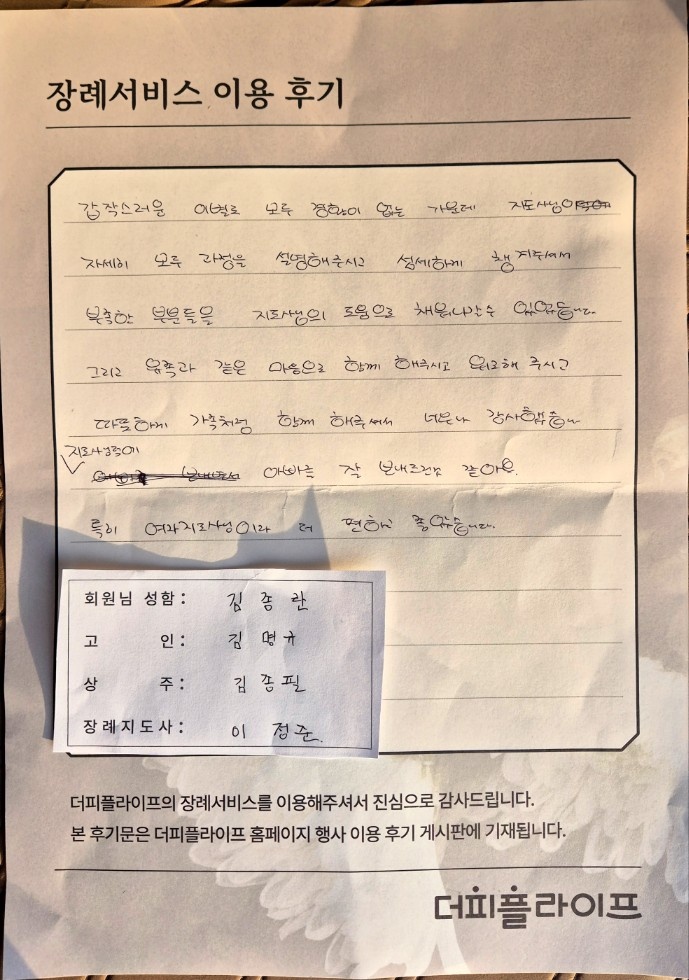 장례서비스 이용 후기
갑작스러운 이별로 모두 경황이 없는 가운데 지도사님이
자세히 모두 과정을 설명해주시고 섬세하게 챙겨주셔서
부족한 부분들을 지도사님의 도움으로 채워나갈수 있었습니다.
그리고 유족과 같은 마음으로 함께 해주시고 위로해 주시고
따뜻하게 가족처럼 함께 해주셔서 너무나 감사했습니다
지도사님 아빠를 잘 보내드린것 같아요.
특히 여자지도사님이라 더 편하고 좋았습니다.
회원님 성함 : 김종란
고 인 : 김명규
상 주 : 김종필
장례지도사 : 이정준
더피플라이프의 장례서비스를 이용해주셔서 진심으로 감사드립니다.
본 후기문은 더피플라이프 홈페이지 행사 이용 후기 게시판에 기재됩니다.
더피플라이프